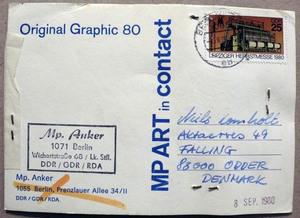 Original Graphic 80
MP ART in contact
DDR 25
LEIPZIGER HERBSTMESSE 1980
Mp. Anker
1071 Berlin
Wichertstraße 68 / Lk. Sfl.
DDR / GDR / RDA
Mp. Anker
1055 Berlin, Prenzlauer Allee 34/II
DDR/GDR/RDA
Niels Lomholt
49
FALLING
88000 ODDER
DENMARK
8 SEP. 1980